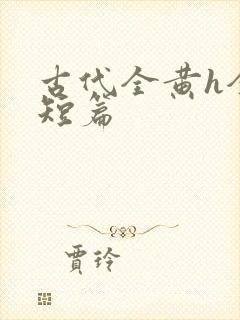 古代全黄h全
短篇
贾玲